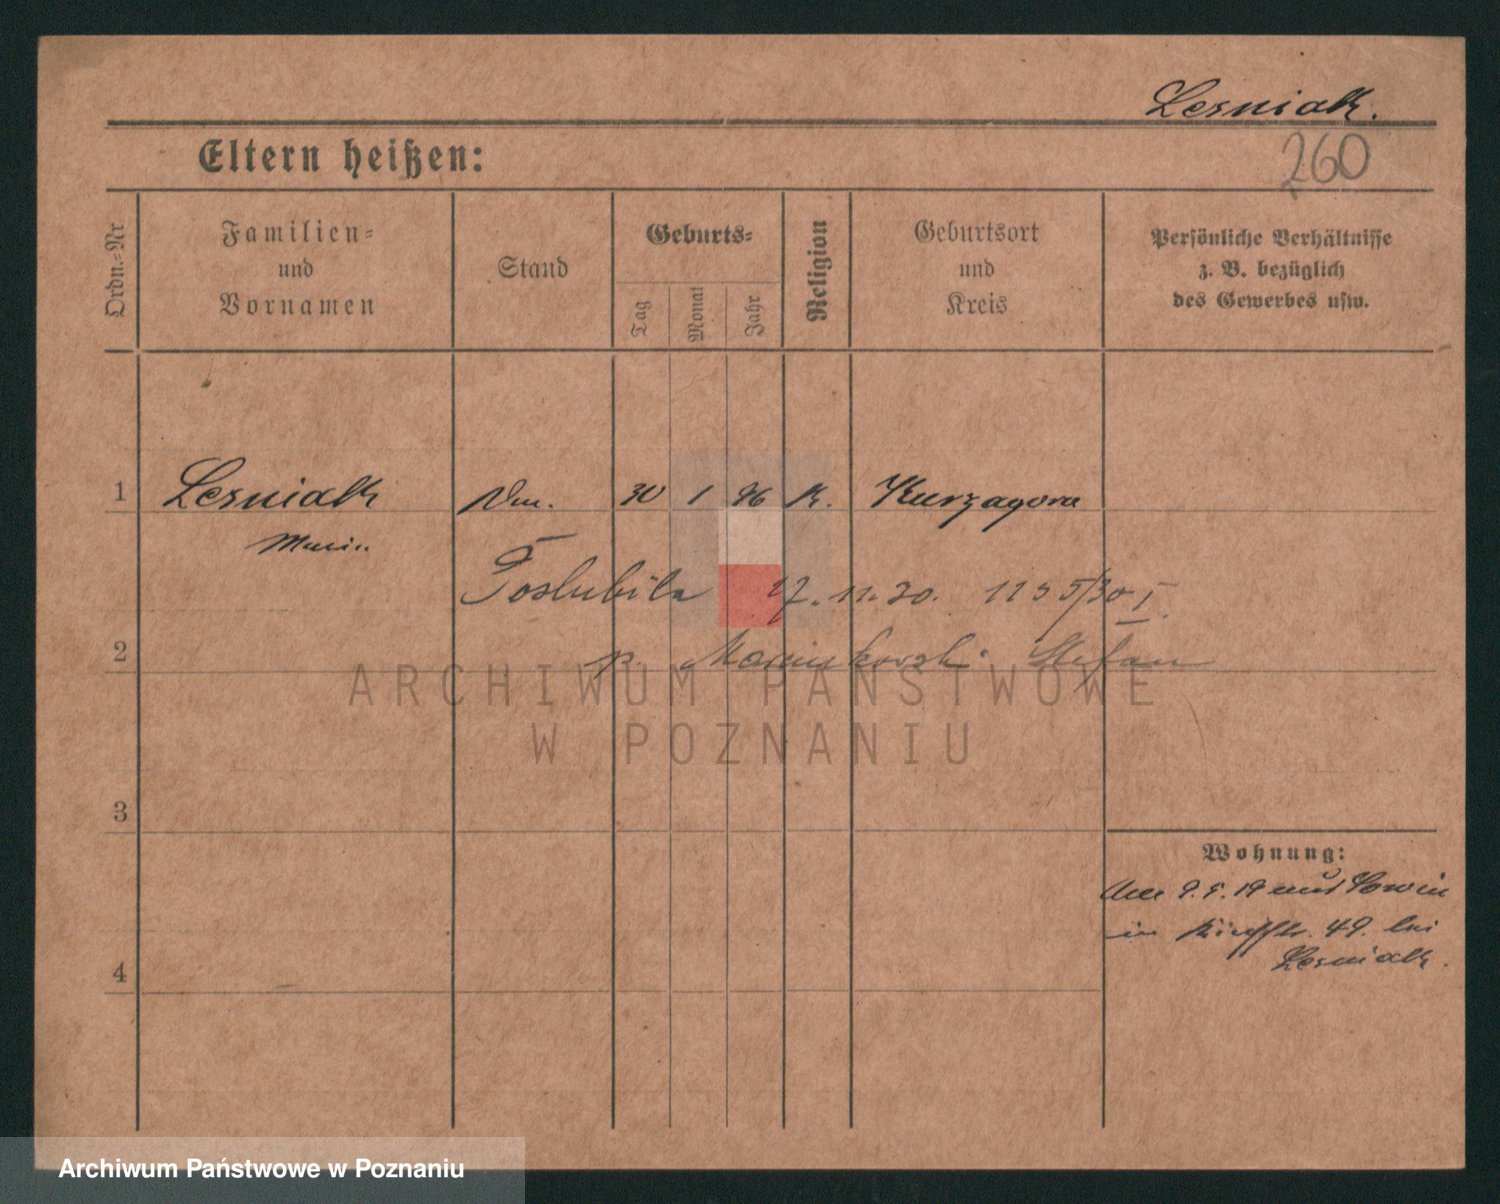 Lesniak.
Eltern heißen:
260
Ordn.-Nr
Familien-
und
Vornamen
Stand
Geburts-
Tag
Monat
Jahr
Religion
Geburtsort
und
Kreis
Persönliche Verhältnisse
z. B. bezüglich
des Gewerbes usw.
1 Lesniak 30 1 96 K. Kurzagora
Poslubila 17.11.30. 1155/30 I.
2 p. Stefan
ARCHIWUM PAŃSTWOWE
W POZNANIU
3
Wohnung:
9.5.19 aus
in 49. bei
Lesniak.
4
Archiwum Państwowe w Poznaniu